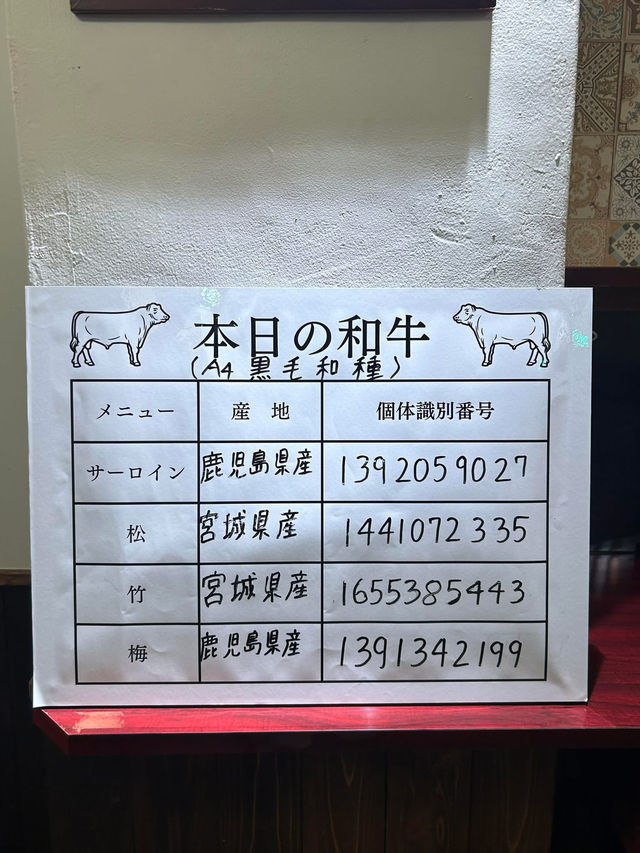 本日の和牛
(A4 黒毛和種)
メニュー 産地 個体識別番号
サーロイン 鹿児島県産 1392059027
松 宮城県産 1441072335
竹 宮城県産 1655385443
梅 鹿児島県産 1391342199